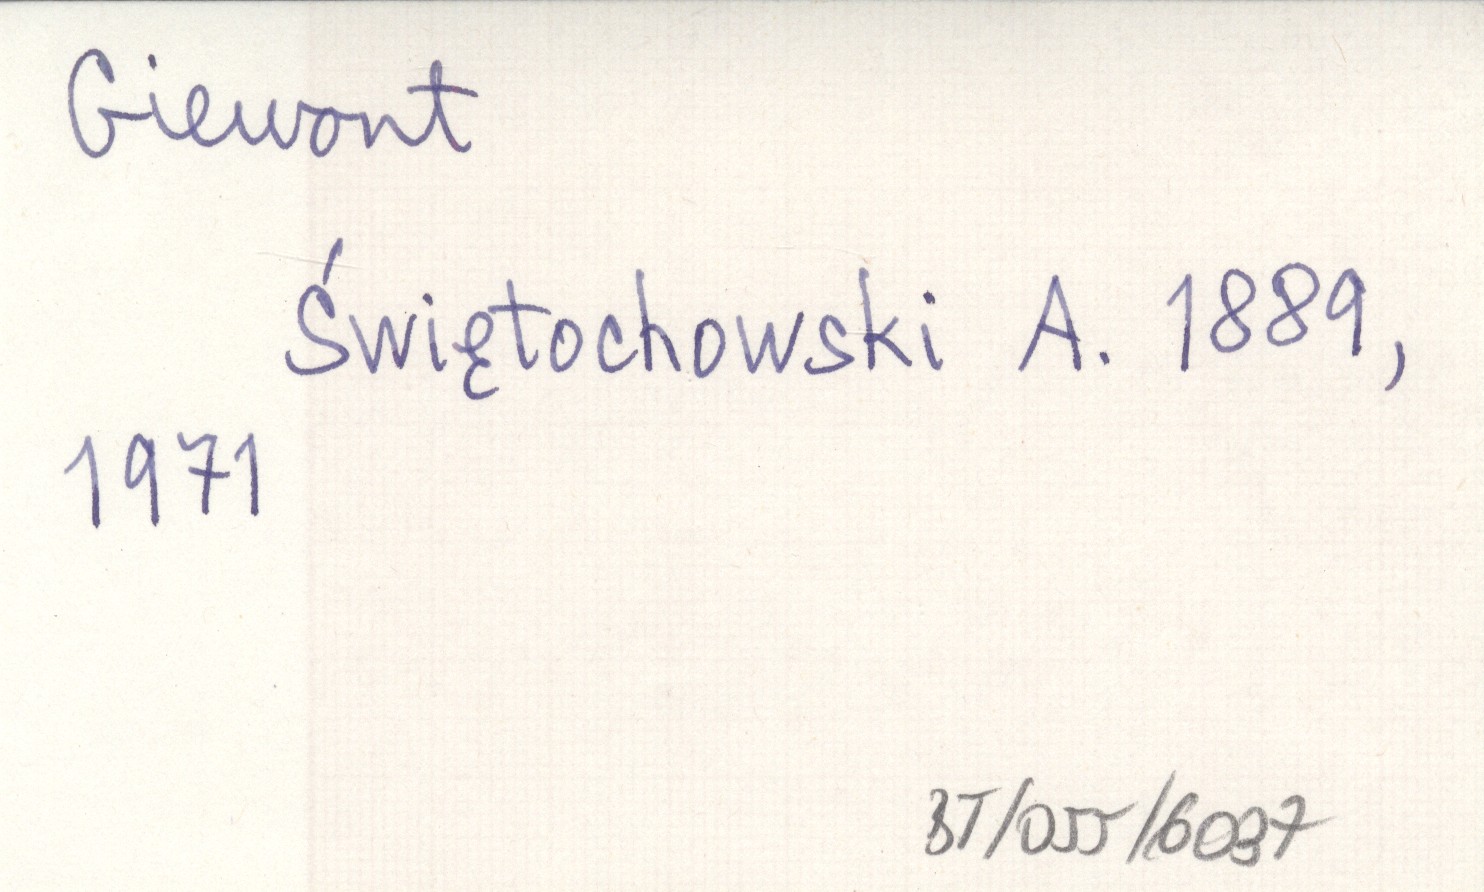 Giewont
Świętochowski A. 1889,
1971
BT/055/6037